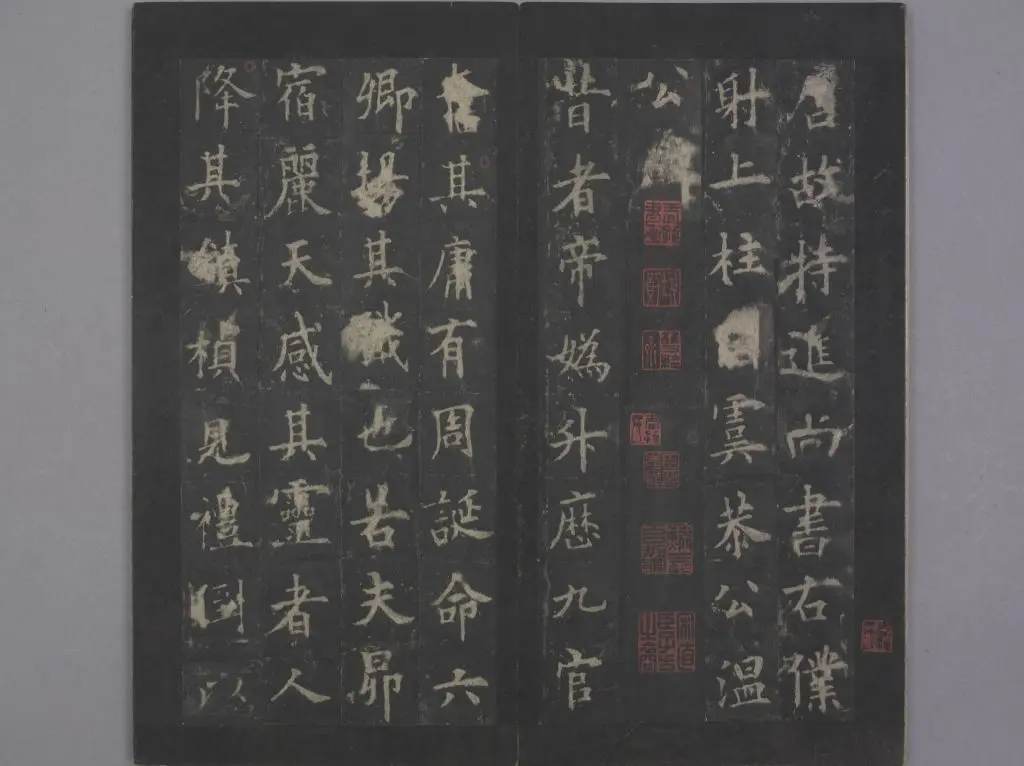 故特進尚書右僕
射上柱虞恭公温
公碑
昔者帝嬀升歷九官
其庸有周誕命六
卿揚其職也若夫昴
宿麗天感其靈者人
降其鎮楨見禮以